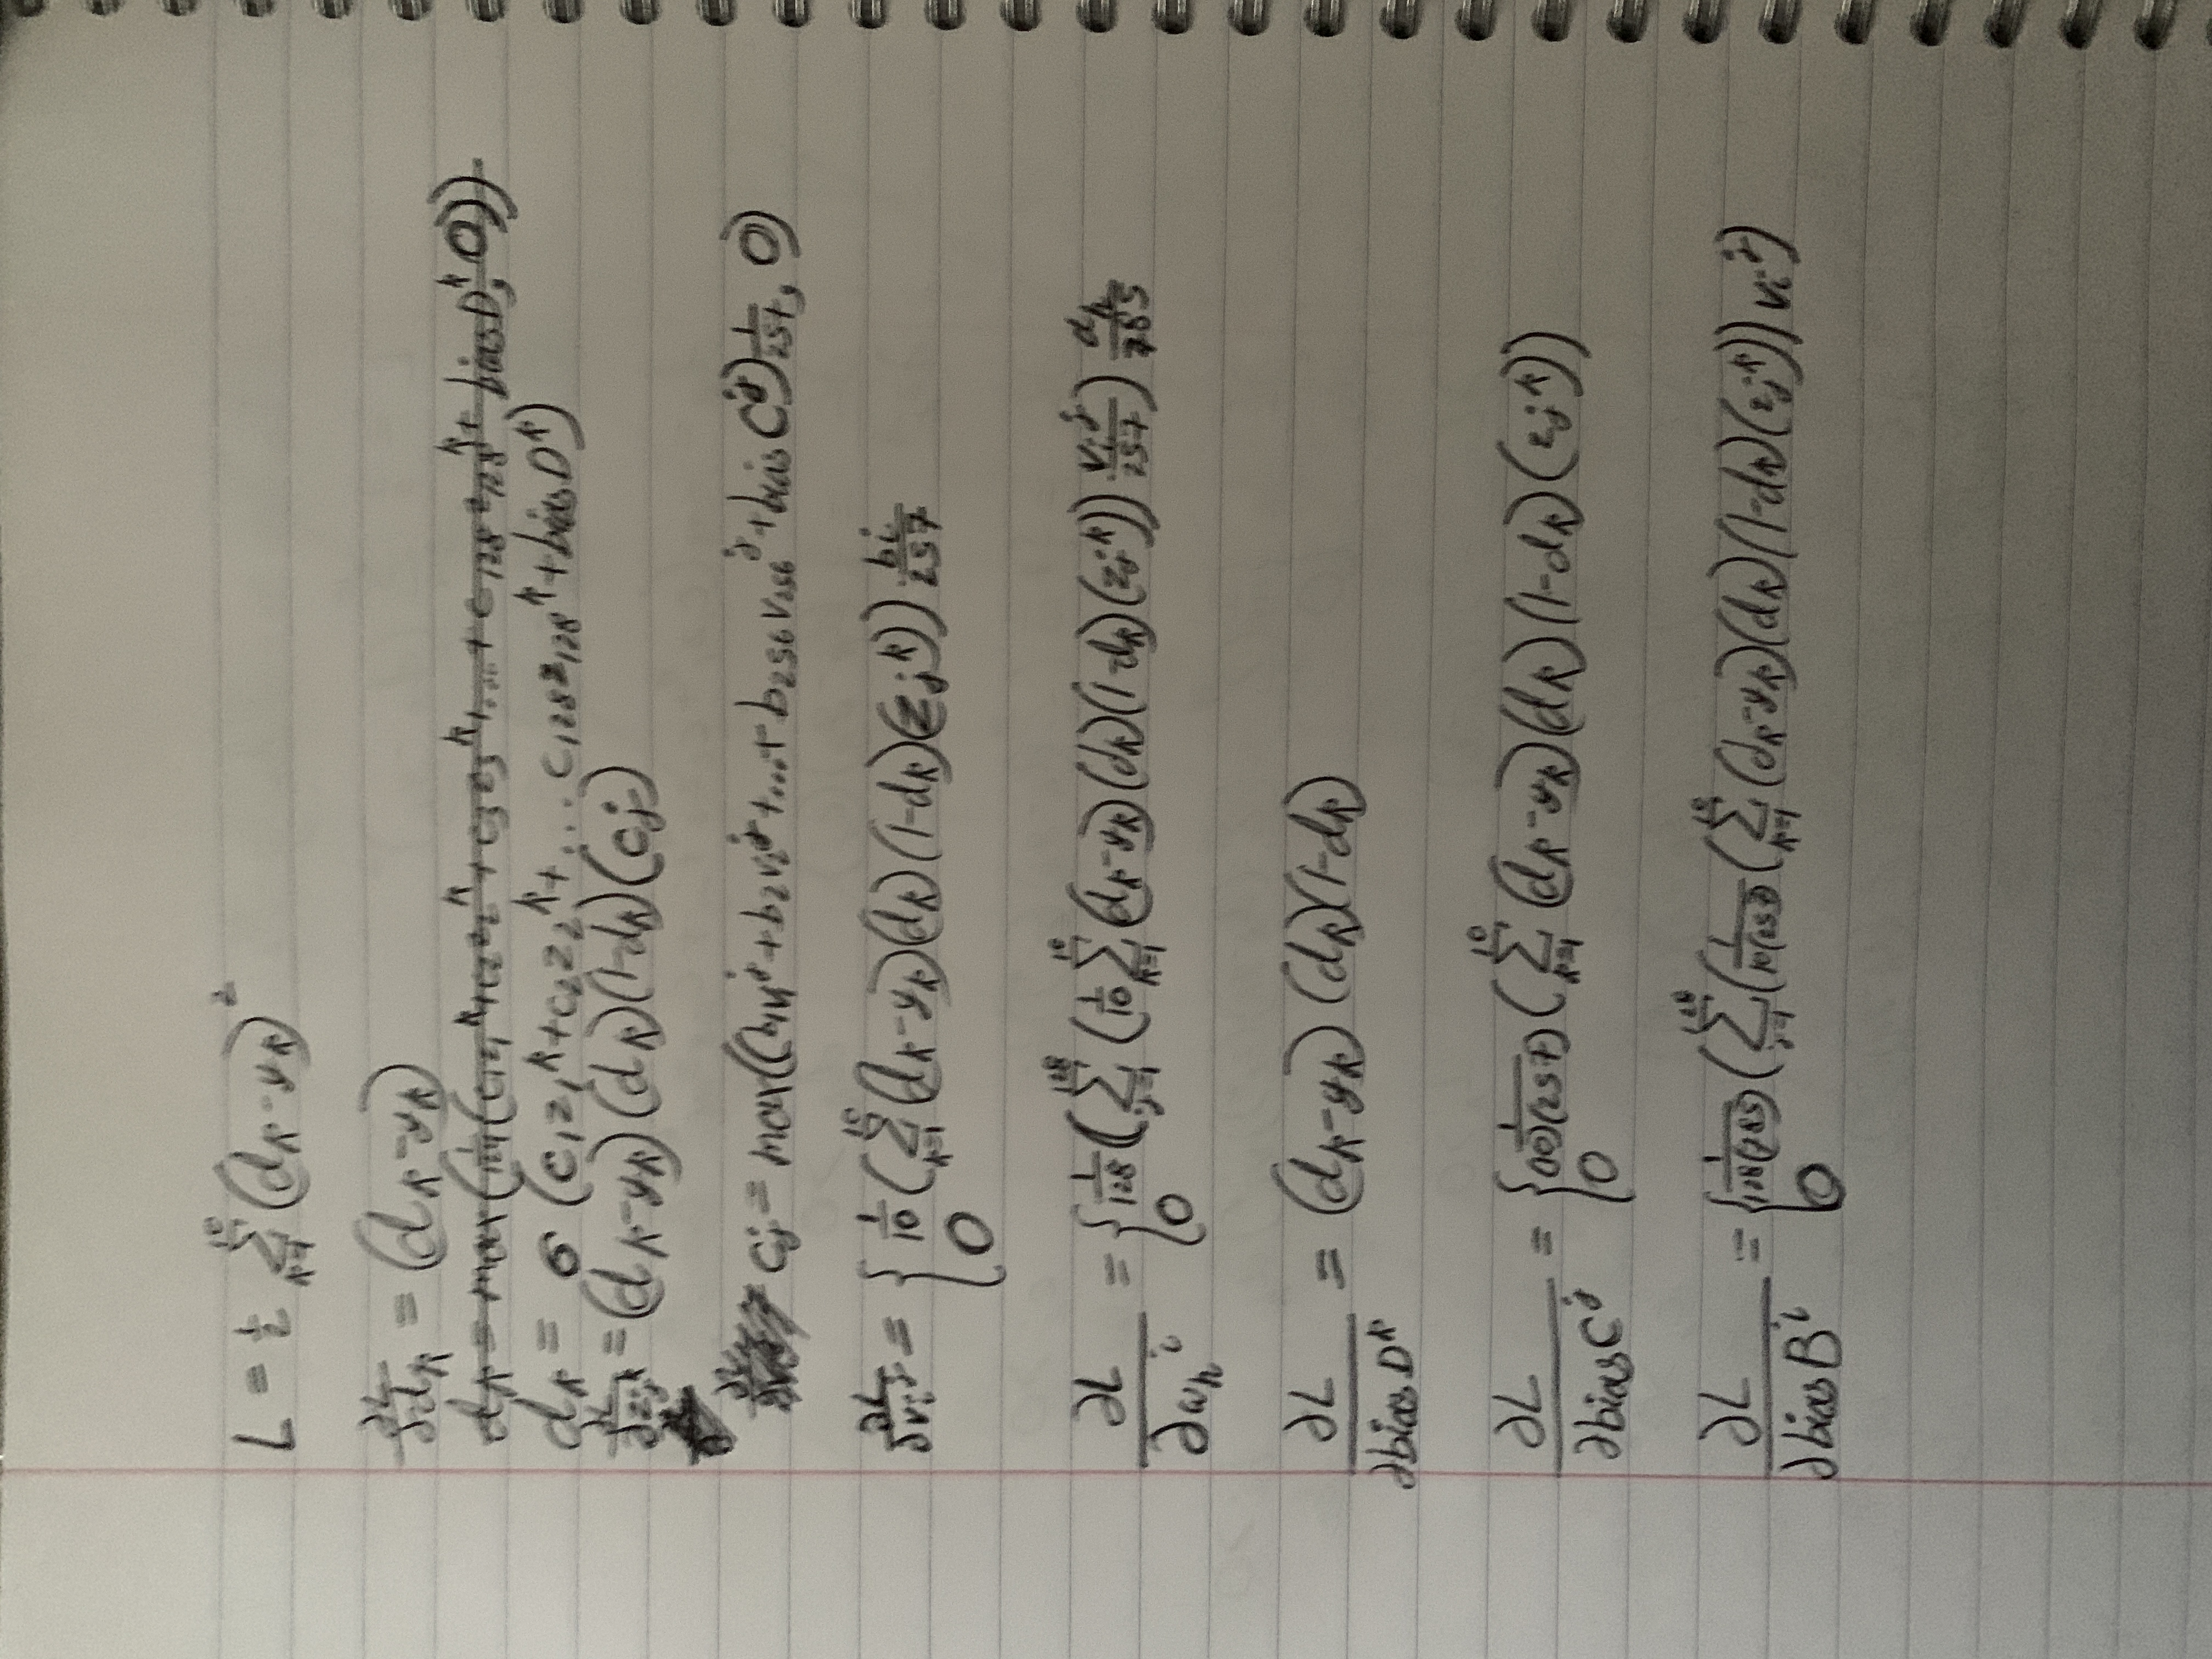 L = 1/2 Σ_{k=1}^{10} (d_k - y_k)^2
∂L/∂d_k = (d_k - y_k)
d_k = max(1/129 (c_1z_1^k + c_2z_2^k + c_3z_3^k + .... + c_128z_128^k + biasD^k, 0))
d_k = σ (c_1z_1^k + c_2z_2^k + ... c_128z_128^k + biasD^k)
∂L/∂z_j^k = (d_k - y_k)(d_k)(1-d_k)(c_j)
c_j = max((b_1v_1^j + b_2v_2^j + ... + b_256v_256^j + biasC^j) 1/257, 0)
∂L/∂v_i^j = { 1/10 (Σ_{k=1}^{10} (d_k - y_k)(d_k)(1-d_k)(z_j^k)) b_i/257
0
∂L/∂w_h^i = { 1/128 (Σ_{j=1}^{128} (1/10 Σ_{k=1}^{10} (d_k - y_k)(d_k)(1-d_k)(z_j^k)) v_i^j/257) a_h/785
0
∂L/∂biasD^k = (d_k - y_k)(d_k)(1-d_k)
∂L/∂biasC^j = { 1/(10)(257) (Σ_{k=1}^{10} (d_k - y_k)(d_k)(1-d_k)(z_j^k))
0
∂L/∂biasB^i = { 1/128(785) (Σ_{j=1}^{128} (1/10(257) (Σ_{k=1}^{10} (d_k - y_k)(d_k)(1-d_k)(z_j^k)) v_i^j)
0